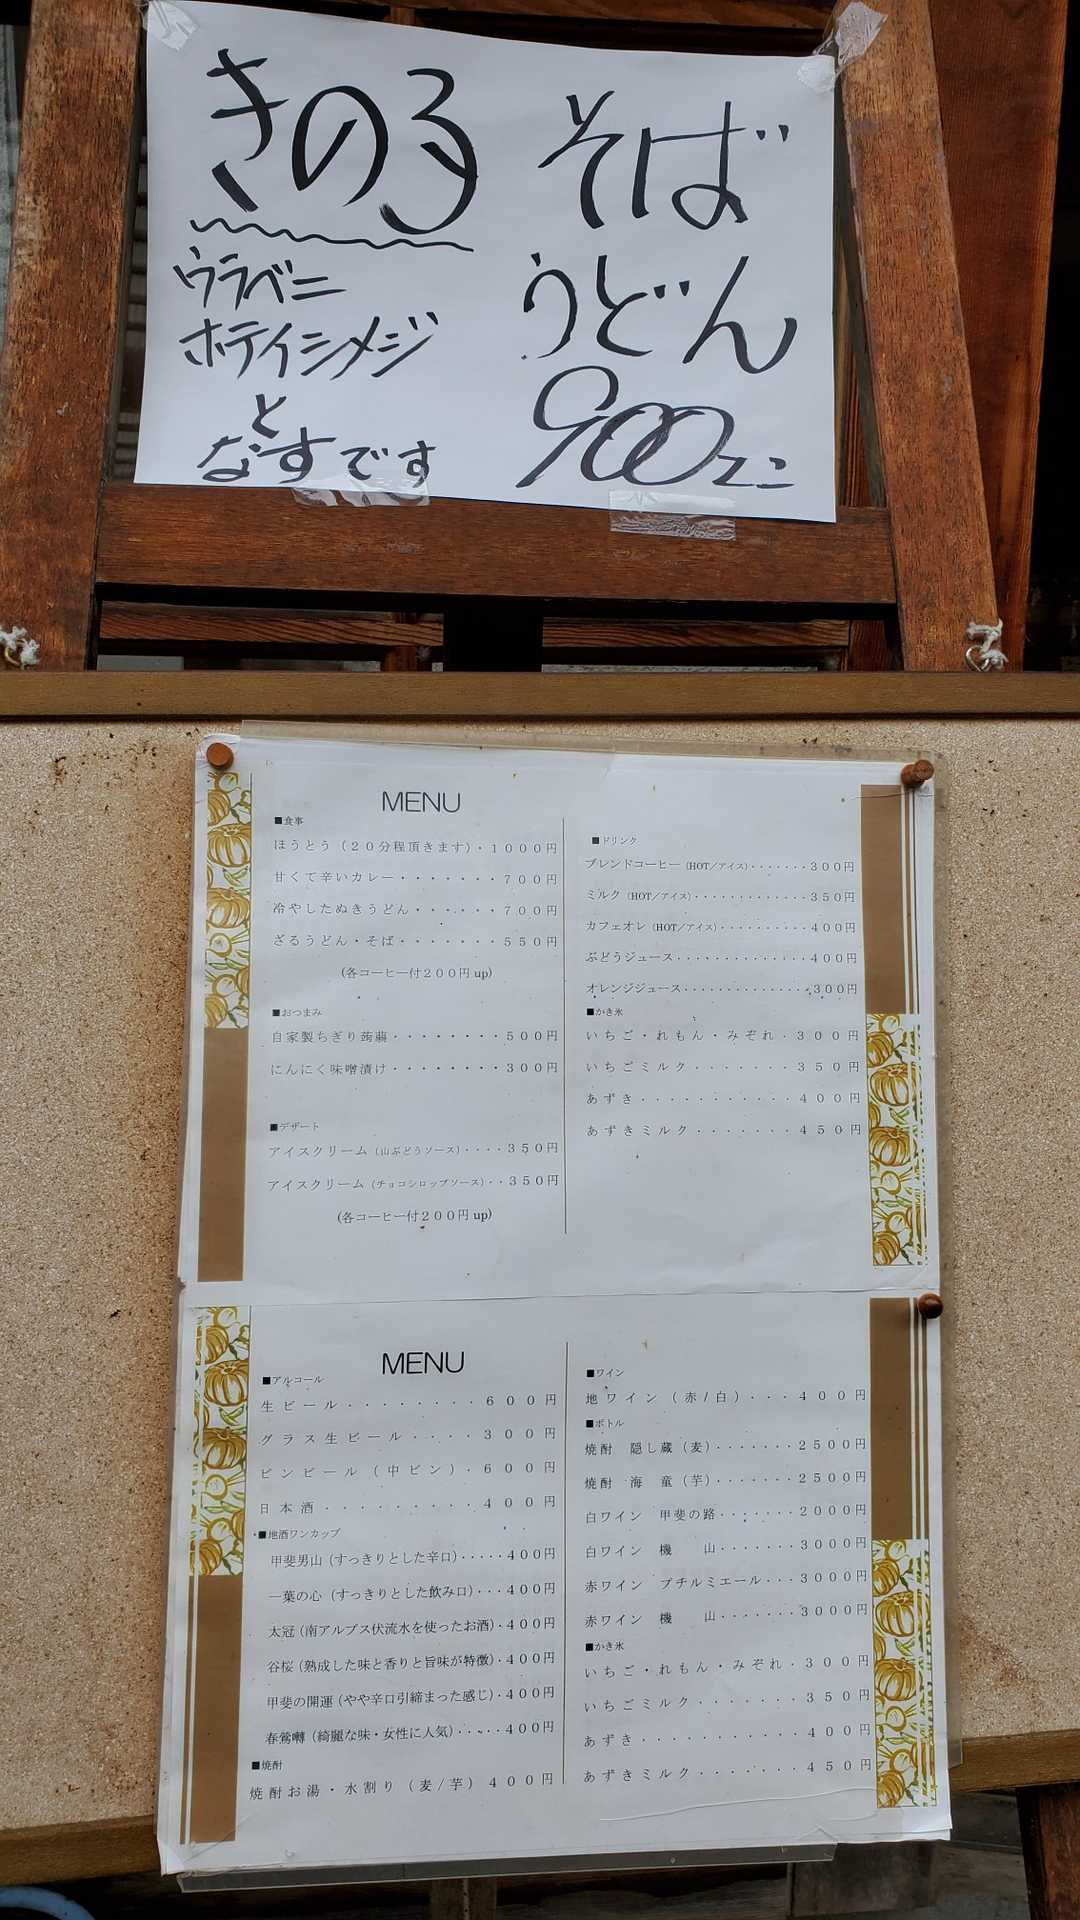 きのこ そば
うどん
900エン
ウラベニ
ホテイシメジ
と
なすです
MENU
■食事
ほうとう（２０分程頂きます）・１０００円
甘くて辛いカレー・・・・・・・７００円
冷やしたぬきうどん・・・・・・７００円
ざるうどん・そば・・・・・・・５５０円
(各コーヒー付２００円 up)
■おつまみ
自家製ちぎり蒟蒻・・・・・・・・５００円
にんにく味噌漬け・・・・・・・・３００円
■デザート
アイスクリーム（山ぶどうソース）・・・・３５０円
アイスクリーム（チョコシロップソース）・・３５０円
(各コーヒー付２００円 up)
■ドリンク
ブレンドコーヒー（HOT/アイス）・・・・・・・３００円
ミルク（HOT/アイス）・・・・・・・・・・・・・３５０円
カフェオレ（HOT/アイス）・・・・・・・・・・４００円
ぶどうジュース・・・・・・・・・・・・・・４００円
オレンジジュース・・・・・・・・・・・・・３００円
■かき氷
いちご・れもん・みぞれ・３００円
いちごミルク・・・・・・・３５０円
あずき・・・・・・・・・・・４００円
あずきミルク・・・・・・・４５０円
MENU
■アルコール
生ビール・・・・・・・・６００円
グラス生ビール・・・・３００円
ビンビール（中ビン）・６００円
日本酒・・・・・・・・・４００円
■地酒ワンカップ
甲斐男山（すっきりとした辛口）・・・・・４００円
一葉の心（すっきりとした飲み口）・・・４００円
太冠（南アルプス伏流水を使ったお酒）・４００円
谷桜（熟成した味と香りと旨味が特徴）・４００円
甲斐の開運（やや辛口引締まった感じ）・４００円
春鶯囀（綺麗な味・女性に人気）・・・・・４００円
■焼酎
焼酎お湯・水割り（麦/芋）４００円
■ワイン
地ワイン（赤/白）・・・４００円
■ボトル
焼酎 隠し蔵（麦）・・・・・・・２５００円
焼酎 海 童（芋）・・・・・・・２５００円
白ワイン 甲斐の路・・・・・・・２０００円
白ワイン 機 山・・・・・・・３０００円
赤ワイン プチルミエール・・・３０００円
赤ワイン 機 山・・・・・・・３０００円
■かき氷
いちご・れもん・みぞれ・３００円
いちごミルク・・・・・・・３５０円
あずき・・・・・・・・・・・４００円
あずきミルク・・・・・・・４５０円